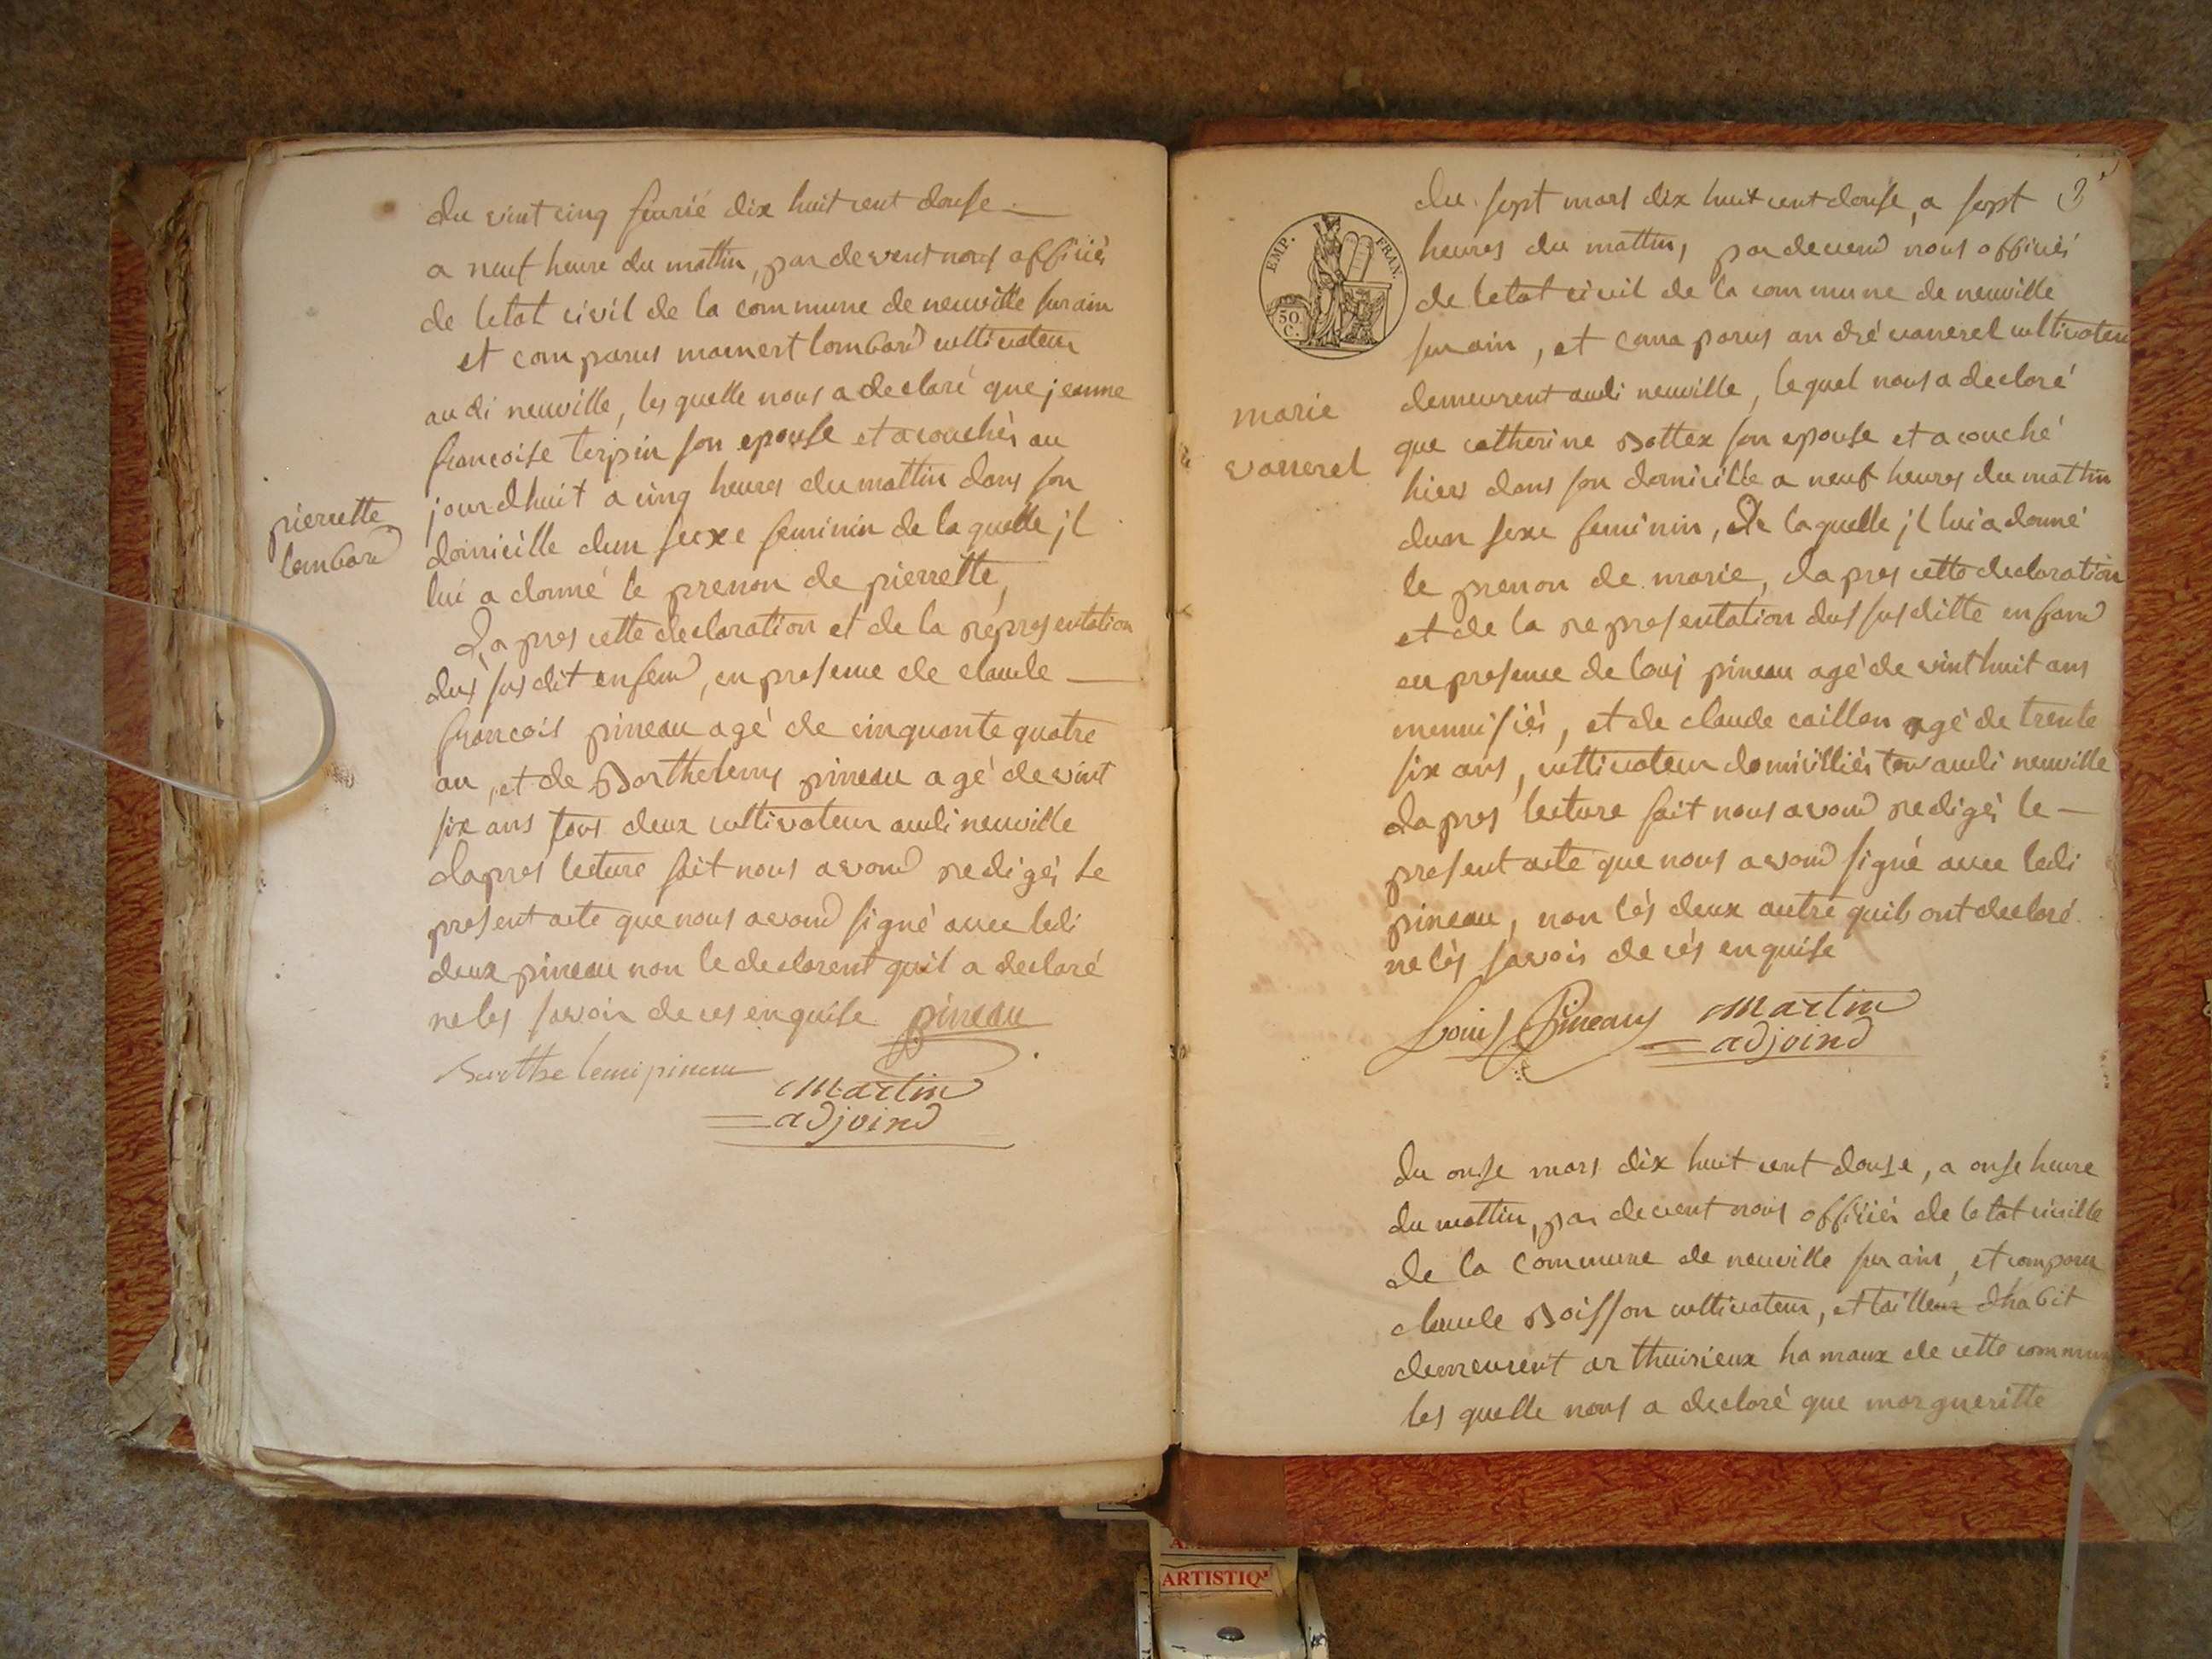 du vint cinq feurié dix huit cent douse
a neuf heure du mattin, par devent nous officiér
de letat civil de la commune de neuville sur ain
et comparus mamert lombard cultivateur
au di neuville, les quelle nous a declaré que jeanne
francoise terpin son epouse et acouchér au
jourdhuit a cinq heures du mattin dans son
pierrette
lombard
domicille dun secxe feminin de la quelle jl
lui a donné le prenon de pierrette,
Dapres cette declaration et de la representation
dus susdit enfend, en presence de claude
francois pineau agé de cinquante quatre
an, et de Barthelemy pineau agé de vint
six ans tous deux cultivateur audi neuville
dapres lecture fait nous avond redigér le
present acte que nous avond signé avec ledi
deux pineau non le declarent quil a declaré
ne les savoir de ces enquise pineau
Barthelemi pineau
Martin
adjoind
3
du sept mars dix huit cent douse, a sept
heures du mattin, par devend nous officiér
EMP. FRAN.
50 C.
de letat civil de la commune de neuville
sur ain, et comaparus andré vanerel cultivateur
demeurent audi neuville, lequel nous a declaré
marie
vanerel
que catherine Bottex son epouse et acouché
hiers dans son domicille a neuf heures du mattin
dun sexe feminin, De laquelle jl lui a donné
le prenon de marie, dapres cette declaration
et de la representation dus susditte enfand
en presence de louj pineau agé de vint huit ans
menuisiér, et de claude caillon agé de trente
six ans, cultivateur domicilliér tous audi neuville
dapres lecture fait nous avond redigér le
present acte que nous avond signé avec ledi
pineau, non lés deux autre quils ont declaré
ne lés savoir de cés enquise
Louis Pineau Martin
adjoind
du onse mars dix huit cent douse, a onse heure
du mattin, par devent nous officiér de letat civille
de la commune de neuville sur ain, et comparu
claude Boisson cultivateur, et tailleur dhabit
demeurent ar thuirieux hamaux de cette commune
les quelle nous a declaré que margueritte
ARTISTIQ